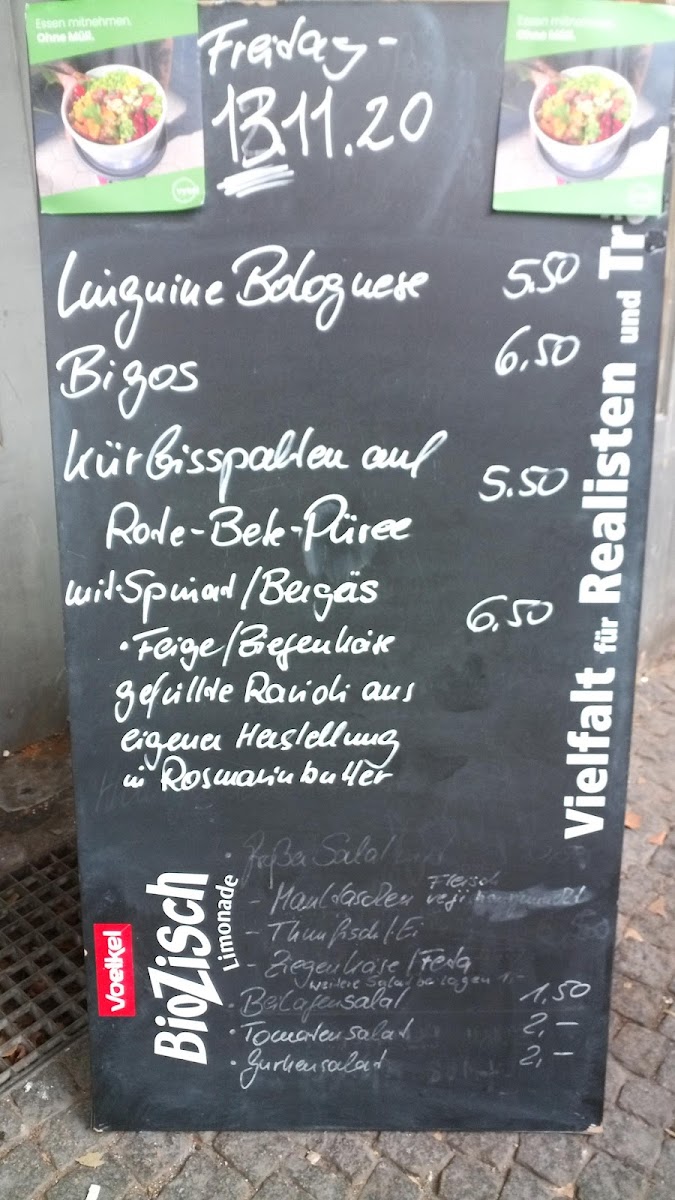 Essen mitnehmen.
Ohne Müll.
Essen mitnehmen.
Ohne Müll.
Freitag -
13.11.20
Linguine Bolognese 5.50
Bigos 6.50
Kürbisspalten auf
Rote-Bete-Püree 5.50
mit Spinat/Bergkäs
• Feige/Ziegenkäse 6.50
gefüllte Ravioli aus
eigener Herstellung
in Rosmarinbutter
• großer Salat
- Maultaschen Fleisch
- Thunfisch/Ei
- Ziegenkäse/Feta
weitere Salatbeilagen 1,-
• Beilagensalat 1.50
• Tomatensalat 2,-
• Gurkensalat 2,-
Voelkel
BioZisch
Limonade
Vielfalt für Realisten und